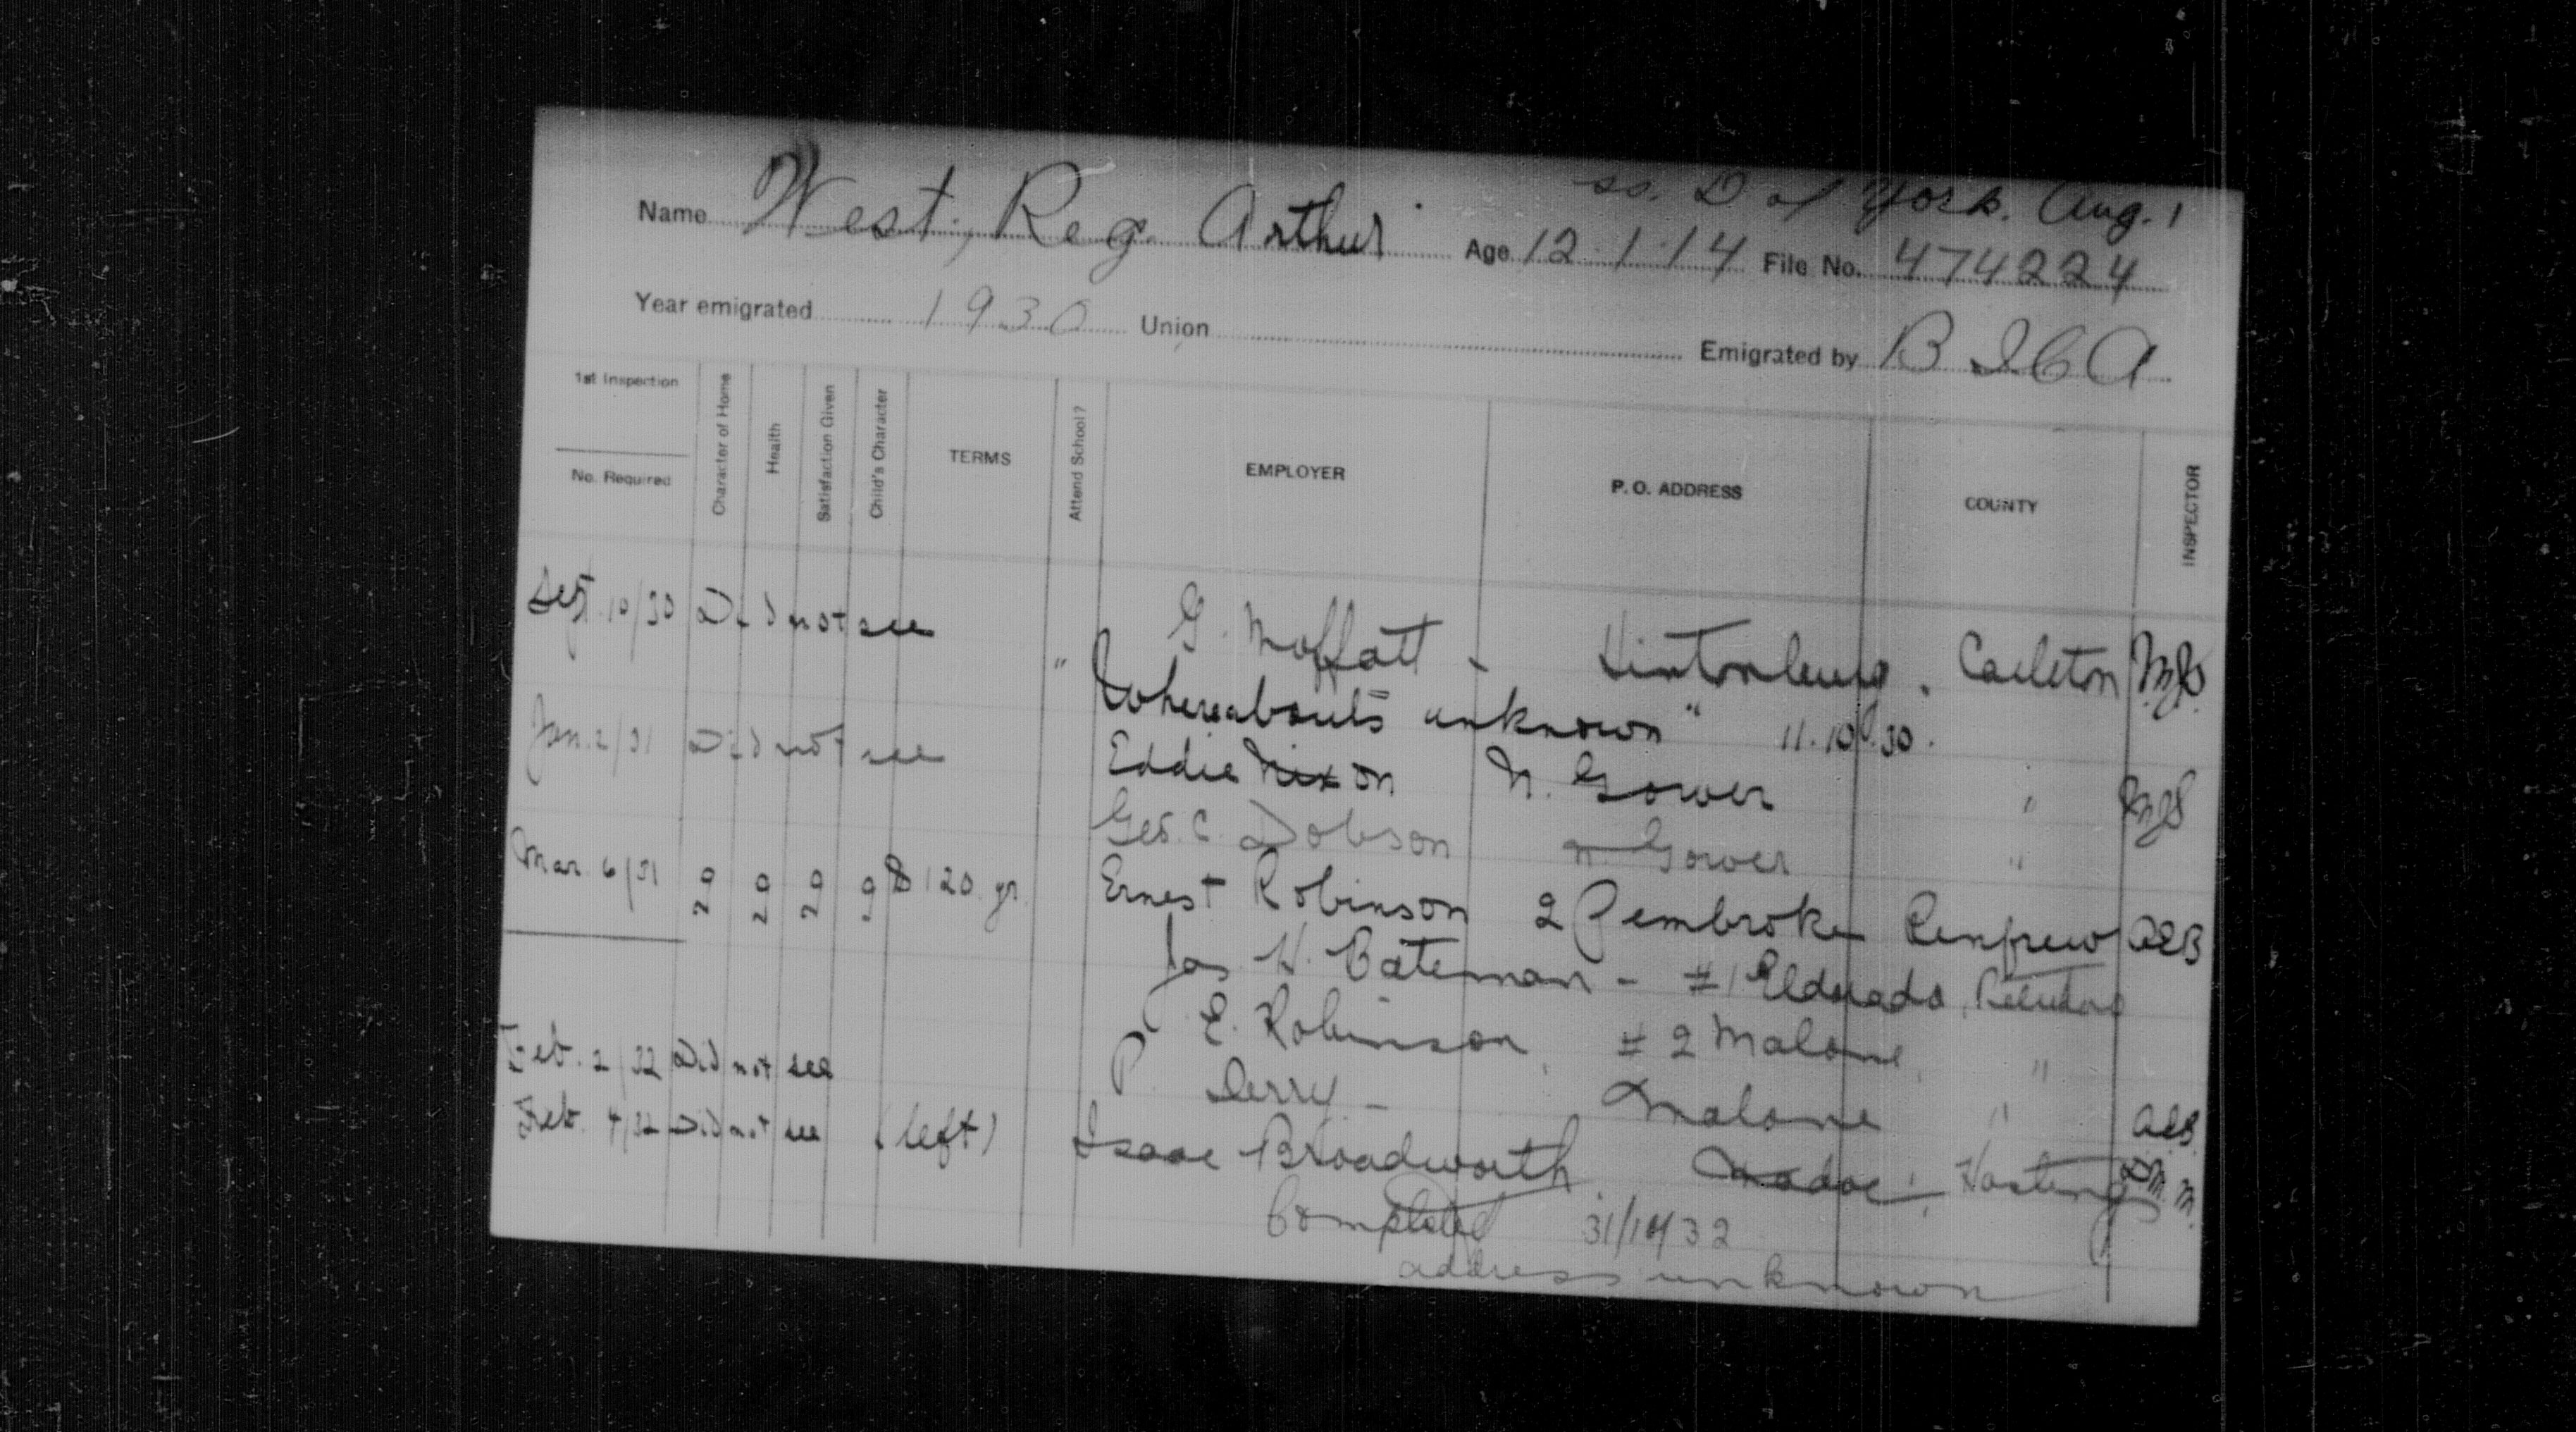 ss. D of York. Aug. 1
Name West, Reg. Arthur Age 12.1.14 File No. 474224
Year emigrated 1930 Union Emigrated by B I C A
1st Inspection
No. Required
Character of Home
Health
Satisfaction Given
Child's Character
TERMS
Attend School?
EMPLOYER
P. O. ADDRESS
COUNTY
INSPECTOR
Sept. 10/30 Did not see G. Moffatt - Hintonburg. Carleton
" Whereabouts unknown " 11.10.30.
Jan. 2/31 Did not see Eddie Nixon N. Gower "
Geo. C. Dobson N. Gower "
Mar. 6/31 g g g g $120 yr. Ernest Robinson 2 Pembroke Renfrew AEB
Jas H. Bateman - #1 Eldorado,
E. Robinson, #2 Malone, "
Feb. 2/32 Did not see P. Derry - Malone " AEB
Feb. 4/32 Did not see (left) Isaac Broadworth Madoc, Hastings D.M.M.
Completed 31/10/32
address unknown